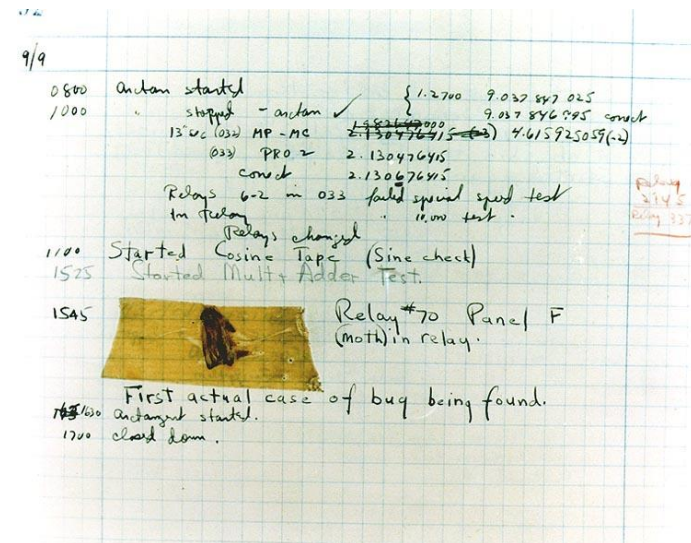 9/9
0800 antan started { 1.2700 9.037 847 025
1000 " stopped - antan ✓ 9.037 846 995 conect
13"uc (032) MP-MC 2.130476415 (-3) 4.615925059(-2)
(033) PRO 2 2.130476415
conect 2.130676415
Relays 6-2 in 033 failed special speed test
In Relay " 10.000 test.
Relays changed
1100 Started Cosine Tape (Sine check)
1525 Started Mult+Adder Test.
1545 Relay #70 Panel F
(moth) in relay.
First actual case of bug being found.
1630 antangent started.
1700 closed down.
Relay
Relay 337